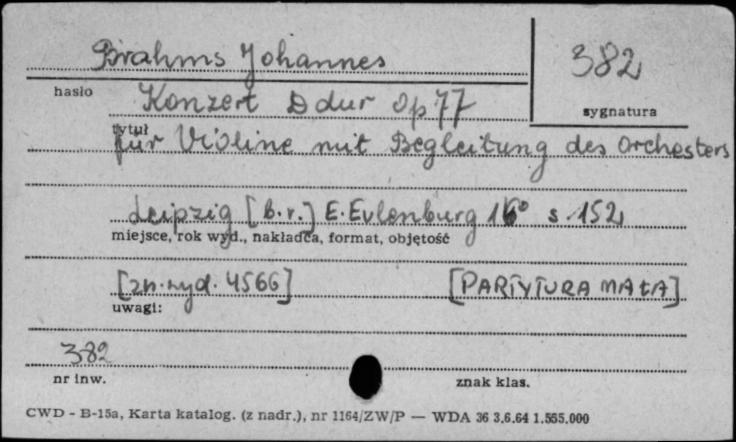 Brahms Johannes
382
hasło
Konzert D dur Op 77
sygnatura
tytuł
für Violine mit Begleitung des Orchesters
Leipzig [b.r.] E. Eulenburg 16° s. 152
miejsce, rok wyd., nakładca, format, objętość
[zn. wyd. 4566] [PARTYTURA MAŁA]
uwagi:
382
nr inw.
znak klas.
CWD - B-15a, Karta katalog. (z nadr.), nr 1164/ZW/P — WDA 36 3.6.64 1.555.000